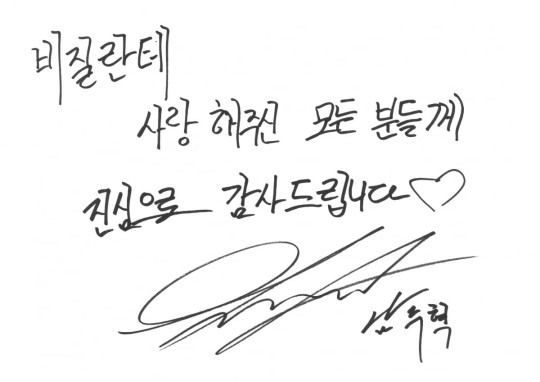 비질란테
사랑 해주신 모든 분들께
진심으로 감사드립니다♡
남주혁